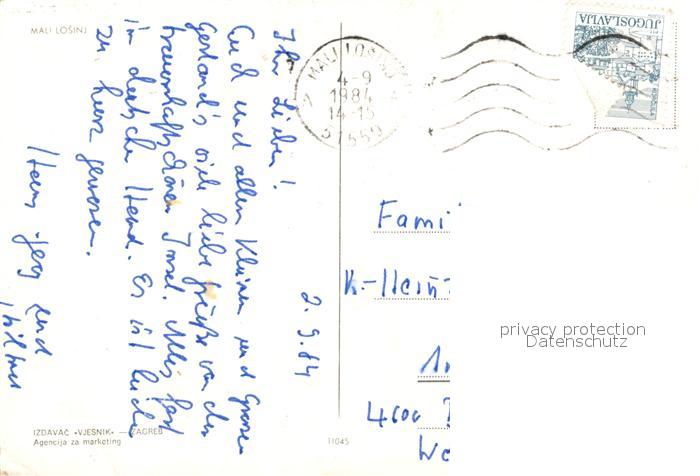 MALI LOŠINJ
JUGOSLAVIJA
MALI LOŠINJ
4-9
1984
14-15
51550
2.9.84
Ihr Lieben!
Euch und allen Kleinen und Grossen
Gerland's viele liebe Grüße von der
traumhaft schönen Insel. Alles fast
in deutscher Hand. Es ist leider
zu kurz gewesen.
Heinz-Jerg und
Fami
K.-Hein
4600
We
privacy protection
Datenschutz
IZDAVAČ «VJESNIK» — ZAGREB
Agencija za marketing
11045